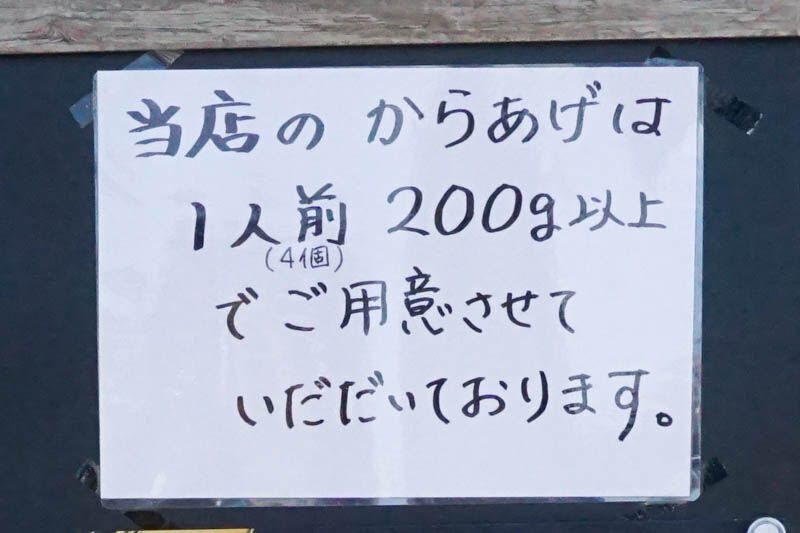 当店の からあげは
1人前 200g以上
(4個)
でご用意させて
いだだいております。